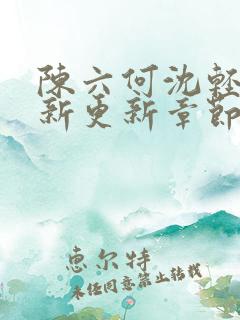 陳六何沈輕
新更新章節
惠尔特
未经同意禁止转载